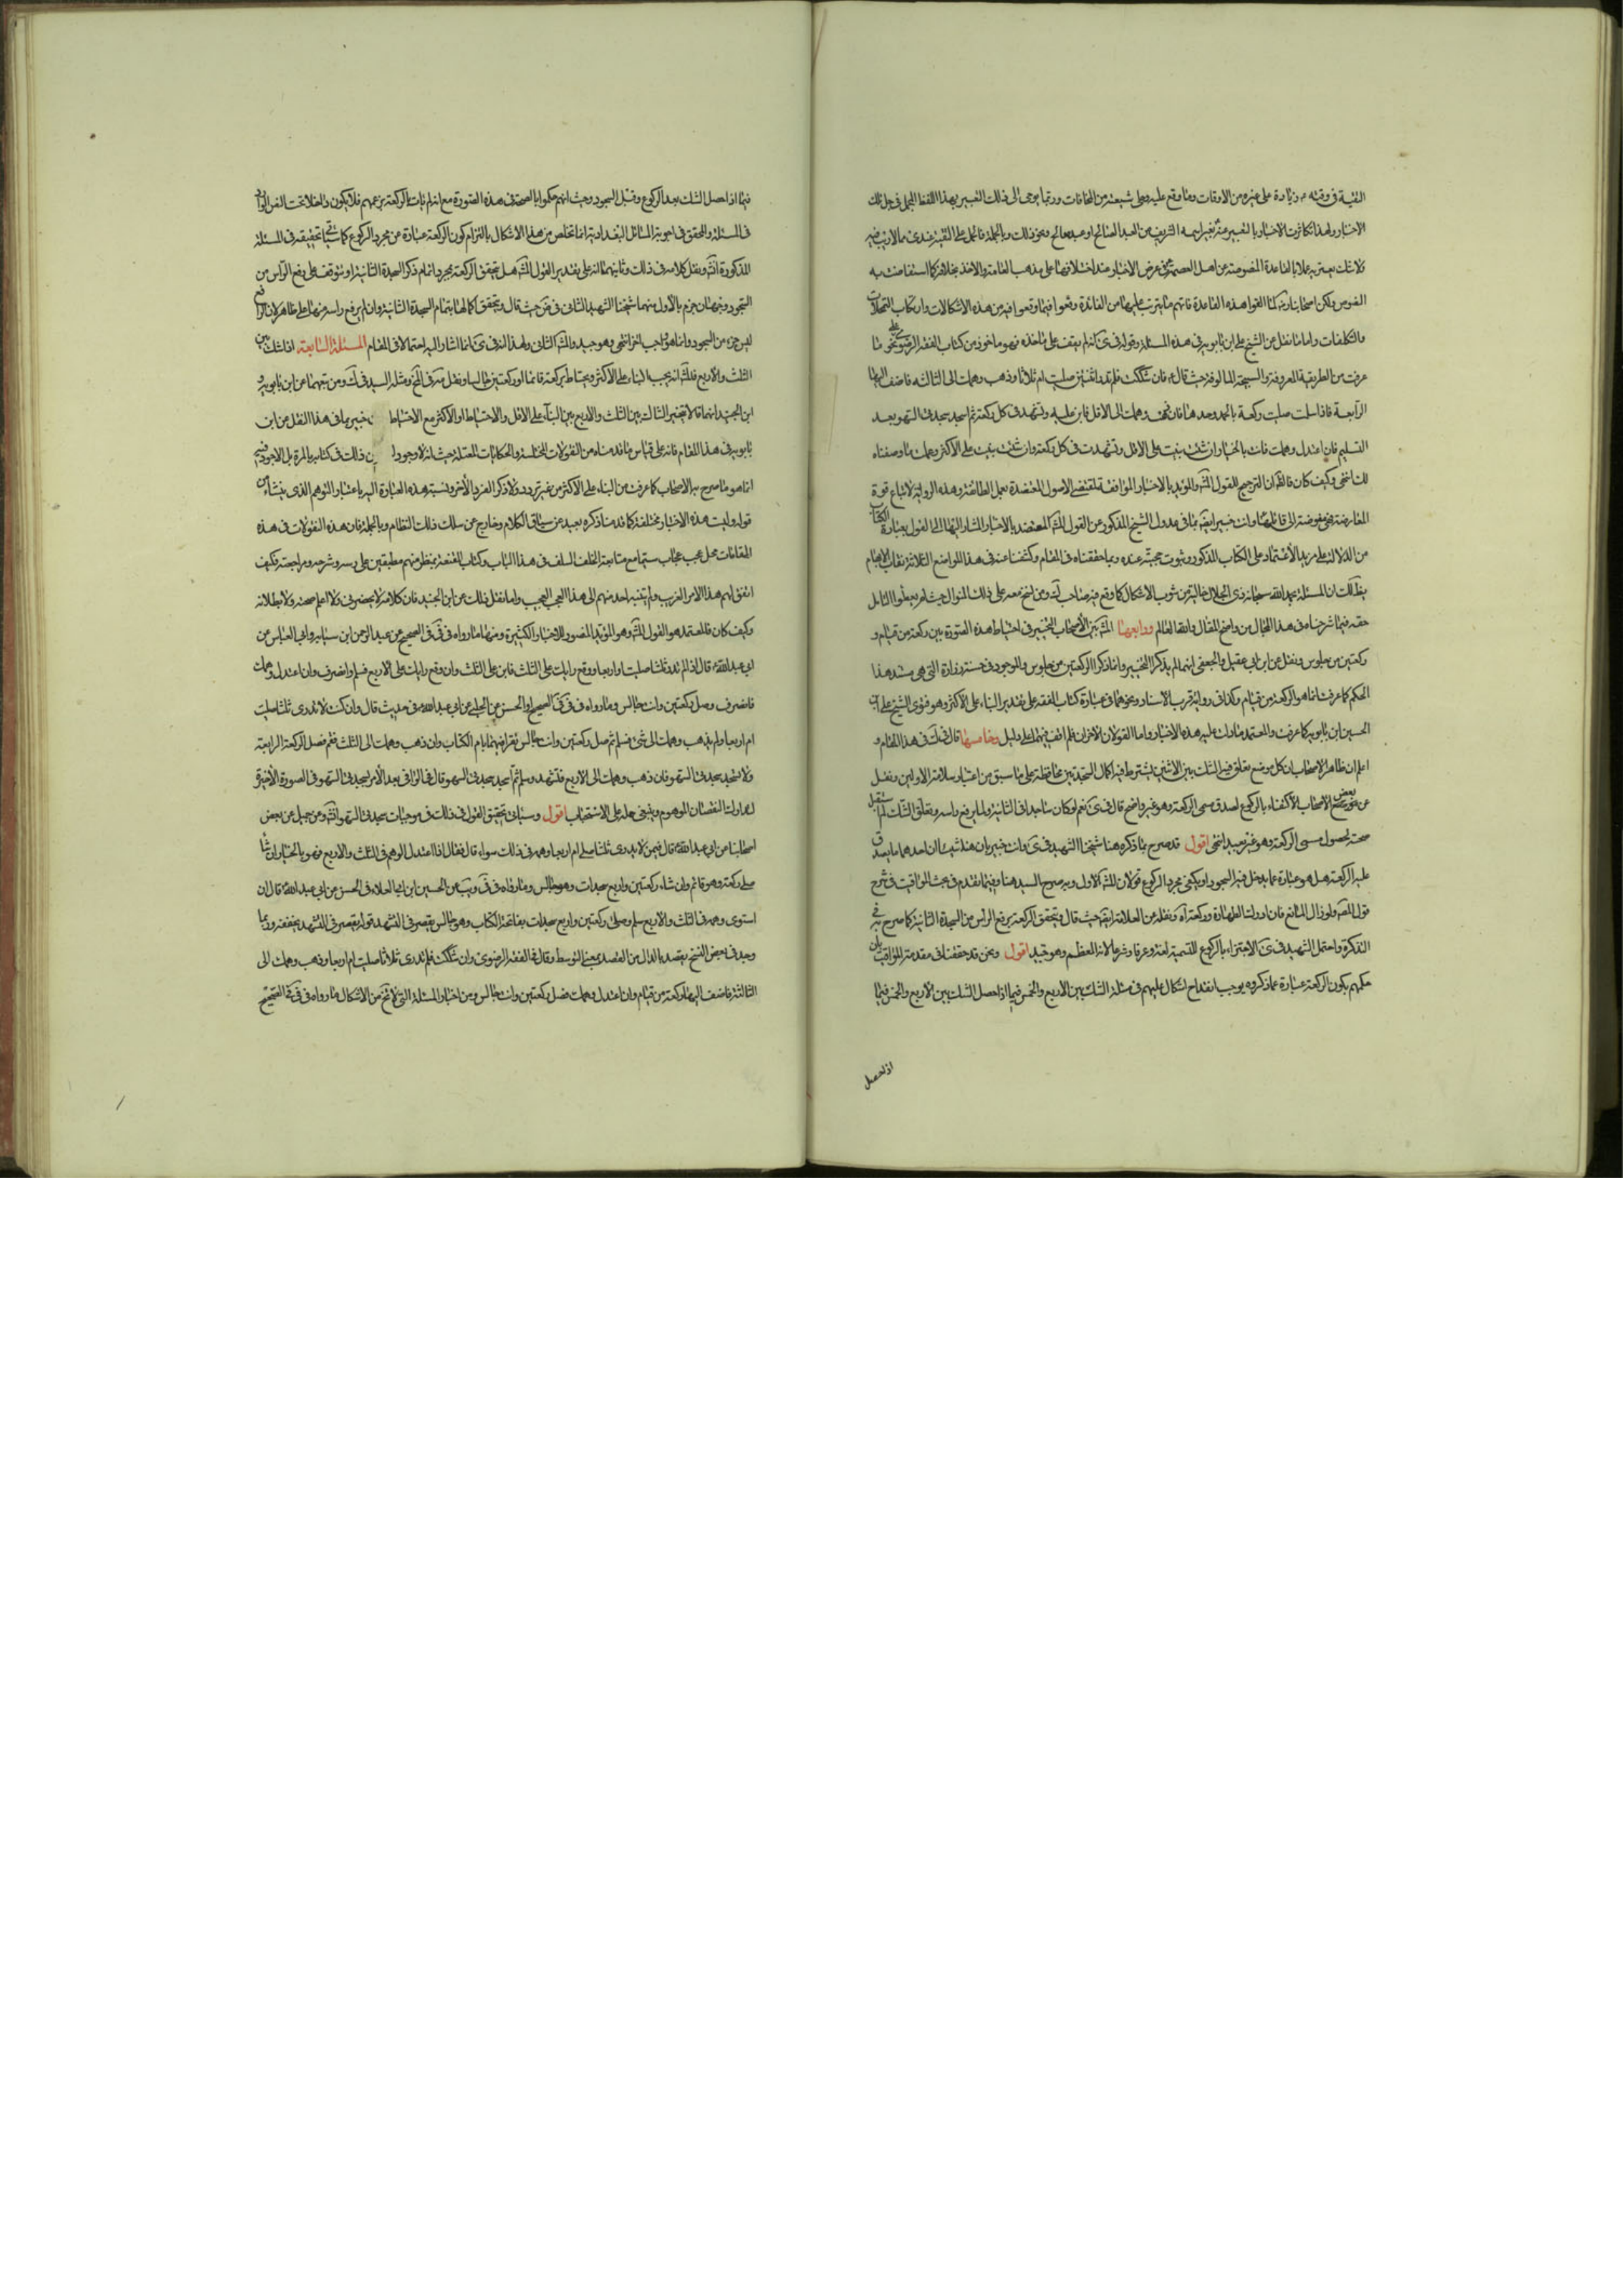 التقية في وقته ع زيادة على غيره من الاوقات وما وقع عليه وعلى شيعته من المخافات وربما يومى الى ذلك التعبير بهذا اللفظ المجمل في جل تلك
الاخبار ولهذا تكاثرت الاخبار بالتعبير عنه بغير اسمه الشريف من العبد الصالح او عبد صالح ونحو ذلك وبالجملة فالحمل على التقية عندى مما لا ريب فيه
ولا شك يعتريه عملا بالقاعدة المنصوصة عن اهل العصمة في عرض الاخبار عند اختلافها على مذهب العامة والاخذ بخلافه كما استفاضت به
النصوص ولكن اصحابنا لما الغوا هذه القاعدة فاتهم ما يترتب عليها من الفائدة وقعوا فيما وقعوا فيه من هذه الاشكالات وارتكاب التمحلات
والتكلفات واما ما نقل عن الشيخ علي ابن بابويه في هذه المسئلة وقوله في كى انه لم يقف على ماخذه فهو ماخوذ من كتاب الفقه الرضوى على نحو ما
عرفت من الطريقة المعروفة والسجية المالوفة حيث قال ع فان شككت فلم تدر اثنتين صليت ام ثلاثا وذهب وهمك الى الثالثه فاضف اليها
الرابعة فاذا سلمت صليت ركعة بالحمد وحدها فان ذهب وهمك الى الاقل فابن عليه وتشهد في كل ركعة ثم اسجد سجدتى السهو بعد
التسليم فان اعتدل وهمك فانت بالخيار ان شئت بنيت على الاقل وتشهدت في كل ركعة وان شئت بنيت على الاكثر وعملت ما وصفناه
لك انتهى وكيف كان فالظ ان الترجيح للقول المش والمؤيد بالاخبار الموافقة لمقتضى الاصول المعتضدة بعمل الطائفة وهذه الرواية لاتباع قوة
المعارضة فهى مفوضة الى قائلها وانت خبير ايض بما في عدول الشيخ المذكور عن القول المش المعتضد بالاخبار المشار اليها الى القول بعبارة الكتاب
من الدلالة على مزيد الاعتماد على الكتاب المذكور وثبوت حجيته عنده وبما حققناه في المقام وكشفنا عنه في هذا المواضع الثلاثة نقاب الابهام
يظهر لك ان المسئلة بحمد الله سبحانه ذى الجلال خالية من شوب الاشكال كما وقع فيه صاحب كى ومن نسج معه على ذلك المنوال حيث لم يعطوا التامل
حقه فيما شرحناه في هذا المجال من واضح المقال والله العالم ورابعها المش بين الاصحاب التخيير في احتياط هذه الصورة بين ركعة من قيام و
ركعتين من جلوس ونقل عن ابن ابي عقيل والجعفى انهما لم يذكرا التخيير وانما ذكرا الركعتين من جلوس والموجود في حسنة زرارة التى هى مستند هذا
الحكم كما عرفت انما هو الركعة من قيام وكذا في رواية قرب الاسناد ونحوهما في عبارة كتاب الفقه على تقدير البناء على الاكثر وهو فتوى الشيخ على بن
الحسين ابن بابويه كما عرفت والمعتمد ما دلت عليه هذه الاخبار واما القولان الاخران فلم اقف فيهما على دليل وخامسها قال في ك في هذا المقام و
اعلم ان ظاهر الاصحاب ان كل موضع تعلق فيه الشك بين الاثنين يشترط فيه اكمال السجدتين محافظة على ما سبق من اعتبار سلامة الاوليين ونقل
عن بعض الاصحاب الاكتفاء بالركوع لصدق مسمى الركعة وهو غير واضح قال في كى نعم لو كان ساجدا في الثانية ولما يرفع راسه وتعلق الشك لم استبعد
صحته لحصول مسمى الركعة وهو غير بعيد انتهى اقول قد صرح بما ذكره هنا شيخنا الشهيد في كى وانت خبير بان هنا شيئان احدهما ما يصدق
عليه الركعة هل هو عبارة عما يدخل فيه السجود او يكفى مجرد الركوع قولان للمش الاول وبه صرح السيد هنا وفيما تقدم في بحث المواقيت في شرح
قول المص ولو زال المانع فان ادرك الطهارة وركعة اه ونقله عن العلامة ايض حيث قال وتتحقق الركعة برفع الراس من السجدة الثانية كما صرح به في
التذكرة واحتمل الشهيد في كى الاجتزاء بالركوع للتسمية لغة وعرفا وشرعا لانه المعظم وهو جيد اقول ونحن قد حققنا في مقدمة المواقيت بان
حكمهم بكون الركعة عبارة عما ذكروه يوجب انقداح اشكال عليهم في مسئلة الشك بين الاربع والخمس فيما اذا حصل الشك بين الاربع والخمس فيما
اذا حصل
فيما اذا حصل الشك بعد الركوع وقبل السجود حيث انهم حكموا بالصحة في هذه الصورة مع انه لم يات بالركعة بزعمهم فلا يكون داخلا تحت النص الوارد
في المسئلة والمحقق في اجوبة المسائل البغدادية انما تخلص من هذا الاشكال بالتزام كون الركعة عبارة من مجرد الركوع كما سياتى تحقيقه في المسئلة
المذكورة انش ونقل كلامه في ذلك وثانيهما انه على تقدير القول المش هل تتحقق الركعة بمجرد اتمام ذكر السجدة الثانية او يتوقف على رفع الراس من
السجود وجهان جزم بالاول منهما شيخنا الشهيد الثانى في ض حيث قال ويتحقق اكمالها باتمام السجدة الثانية وان لم يرفع راسه منها على ظاهر لان الرفع
ليس جزء من السجود وانما هو واجب اخر انتهى وهو جيد والمش الثانى ولهذا انه في كى كما اشار اليه احتمالا في المقام المسئلة السابعة اذا شك بين
الثلث والاربع فالمش انه يجب البناء على الاكثر ويحتاط بركعة قائما او ركعتين جالسا ونقل عنه في المخ ومثله السيد في ك ومن تبعهما عن ابن بابويه و
ابن الجنيد انهما قالا بتخيير الشاك بين الثلث والاربع بين البناء على الاقل والاحتياط او الاكثر مع الاحتياط خبير بما في هذا النقل عن ابن
بابويه في هذا المقام فانه على قياس ما قدمناه من المنقولات المختلسة والحكايات المعتلة حيث انه لا وجود ذلك في كتابيه بالمرة بل الموجود فيه
انما هو ما صرح به الاصحاب كما عرفت من البناء على الاكثر من غير تردد ولا ذكر الفرد الاخر ونسبة هذه العبارة اليه باعتبار التوهم الذى ينشاء من
قوله وليست هذه الاخبار مختلفة كما قدمنا ذكره بعيد عن سياق الكلام وخارج عن سلك ذلك النظام وبالجملة فان هذه المنقولات في هذه
المقامات محل عجب عجاب سيما مع متابعة الخلف السلف في هذا الباب وكتاب المقنعة بمنظر منهم مطبقين على درسه وشرحه ومراجعته فكيف
اتفق لهم هذا الامر الغريب ولم يتنبه احد منهم الى هذا العجب العجيب واما نقل ذلك عن ابن الجنيد فان كلامه لا يحضرنى ولا اعلم صحته ولا بطلانه
وكيف كان فالمعتمد هو القول المش وهو المؤيد المنصور بالاخبار الكثيرة ومنها ما رواه في في في الصحيح عن عبد الرحمن ابن سيابه وابي العباس عن
ابي عبد الله ع قال اذا لم تدر ثلثا صليت او اربعا ووقع رايك على الثلث فابن على الثلث وان وقع رايك على الاربع فسلم وانصرف وان اعتدل وهمك
فانصرف وصل ركعتين وانت جالس وما رواه في في الصحيح او الحسن عن الحلبي عن ابي عبد الله ع في حديث قال وان كنت لا تدرى ثلثا صليت
ام اربعا ولم يذهب وهمك الى شئ فسلم ثم صل ركعتين وانت جالس تقرا فيهما بام الكتاب وان ذهب وهمك الى الثلث فقم فصل الركعة الرابعة
ولا تسجد سجدتى السهو فان ذهب وهمك الى الاربع فتشهد وسلم ثم اسجد سجدتى السهو قال في الوافى بعد الامر بسجدتى السهو في الصورة الاخيرة
لتدارك النقصان الموهوم وينبغى حمله على الاستحباب اقول وسياتى تحقيق القول في ذلك في موجبات سجدتى السهو انش وعن جميل عن بعض
اصحابنا عن ابي عبد الله ع قال فيمن لا يدرى ثلثا صلى ام اربعا ووهمه في ذلك سواء قال فقال اذا اعتدل الوهم في الثلث والاربع فهو بالخيار ان شاء
صلى ركعة وهو قائم وان شاء ركعتين واربع سجدات وهو جالس وما رواه في في ويب عن الحسين ابن ابي العلاء في الحسن عن ابي عبد الله ع قال ان
استوى وهمه في الثلث والاربع سلم وصلى ركعتين واربع سجدات بفاتحة الكتاب وهو جالس يقصر في التشهد قوله يقصر في التشهد يخففه وربما
وجد في بعض النسخ يقصد بالدال من القصد بمعنى التوسط وقال في الفقه الرضوى وان شككت فلم تدرى ثلاثا صليت ام اربعا وذهب وهمك الى
الثالثة فاضف اليها ركعة من قيام وان اعتدل وهمك فصل ركعتين وانت جالس ومن اخبار المسئلة التى لا تخ من الاشكال ما رواه في في في الصحيح